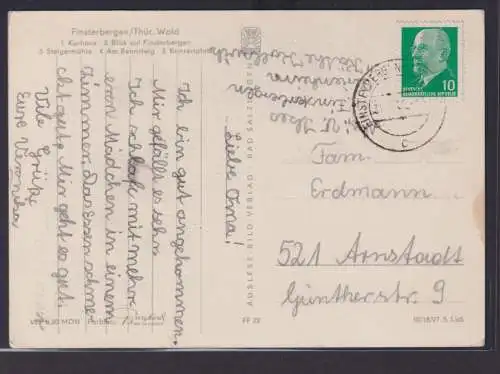 Finsterbergen/Thür. Wald
1 Kurhaus 2 Blick auf Finsterbergen
3 Steigermühle 4 Am Rennsteig 5 Konzertplatz
Liebe Oma!
Ich bin gut angekommen.
Mir gefällt es sehr
Ich schlafe mit mehr
eren Mädchen in einem
Zimmer. Das essen schmе
ckt gut. Mir geht es gut.
Viele Grüße
Eure Veronika
AUSLESE BILD VERLAG BAD SALZUNGEN
FF 22
Finsterbergen
10
FINSTERBERGEN
c
Fam.
Erdmann
521 Arnstadt
Güntherstr. 9